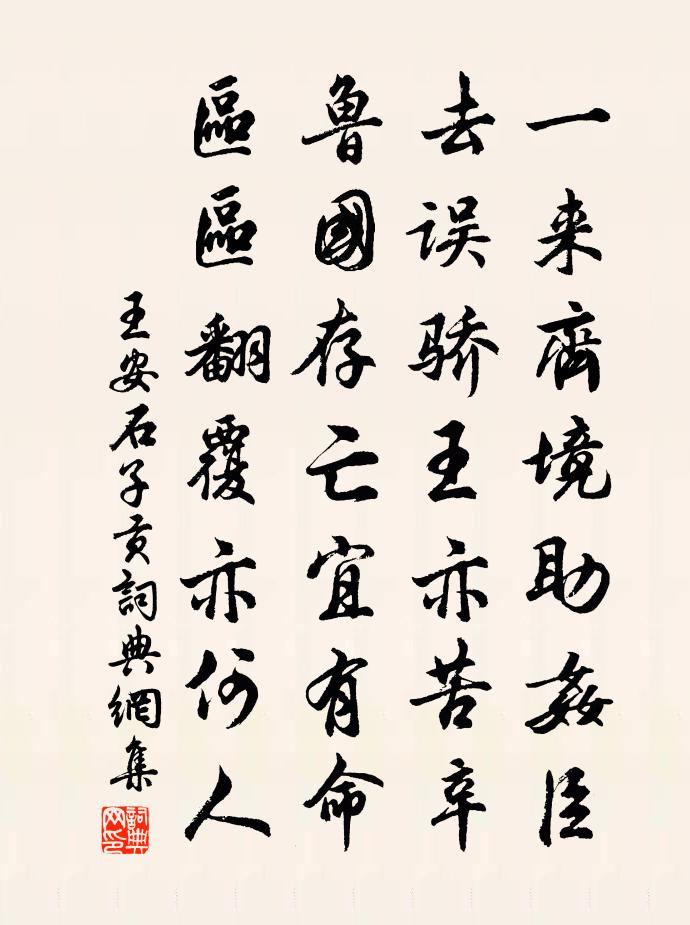 一来齊境助姦臣
去误骄王亦苦辛
魯國存亡宜有命
區區翻覆亦何人
王安石子贡詞典網集
詞典网印